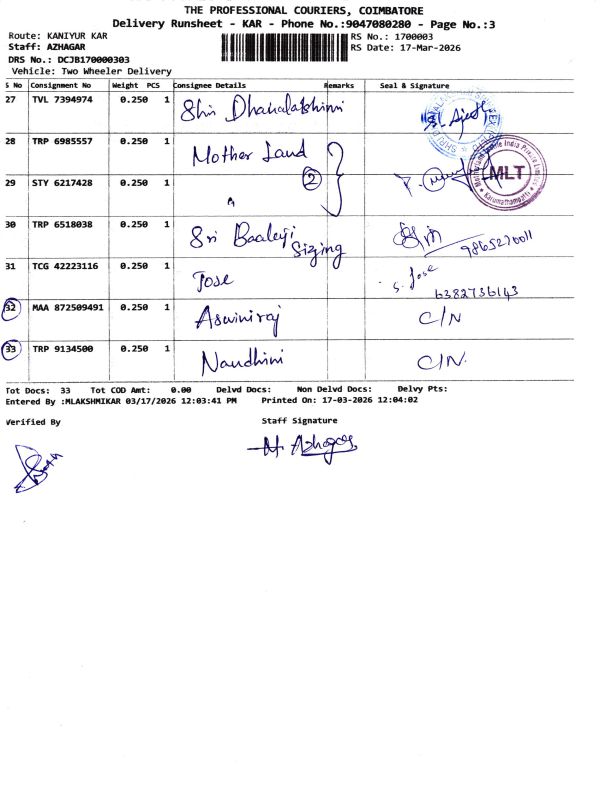 THE PROFESSIONAL COURIERS, COIMBATORE
Delivery Runsheet - KAR - Phone No.:9047080280 - Page No.:3
Route: KANIYUR KAR
RS No.: 1700003
Staff: AZHAGAR
RS Date: 17-Mar-2026
DRS No.: DCJB170000303
Vehicle: Two Wheeler Delivery
S No Consignment No Weight PCS Consignee Details Remarks Seal & Signature
27 TVL 7394974 0.250 1 Shri Dhanalakshmi
28 TRP 6985557 0.250 1 Mother Land
MLT
29 STY 6217428 0.250 1 " 2
30 TRP 6518038 0.250 1 Sri Baalaji Sizing 9865270011
31 TCG 42223116 0.250 1 Jose S. Jose
6382736143
32 MAA 872509491 0.250 1 Aswiniraj C/N
33 TRP 9134500 0.250 1 Nandhini C/N.
Tot Docs: 33 Tot COD Amt: 0.00 Delvd Docs: Non Delvd Docs: Delvy Pts:
Entered By :MLAKSHMIKAR 03/17/2026 12:03:41 PM Printed On: 17-03-2026 12:04:02
Verified By Staff Signature